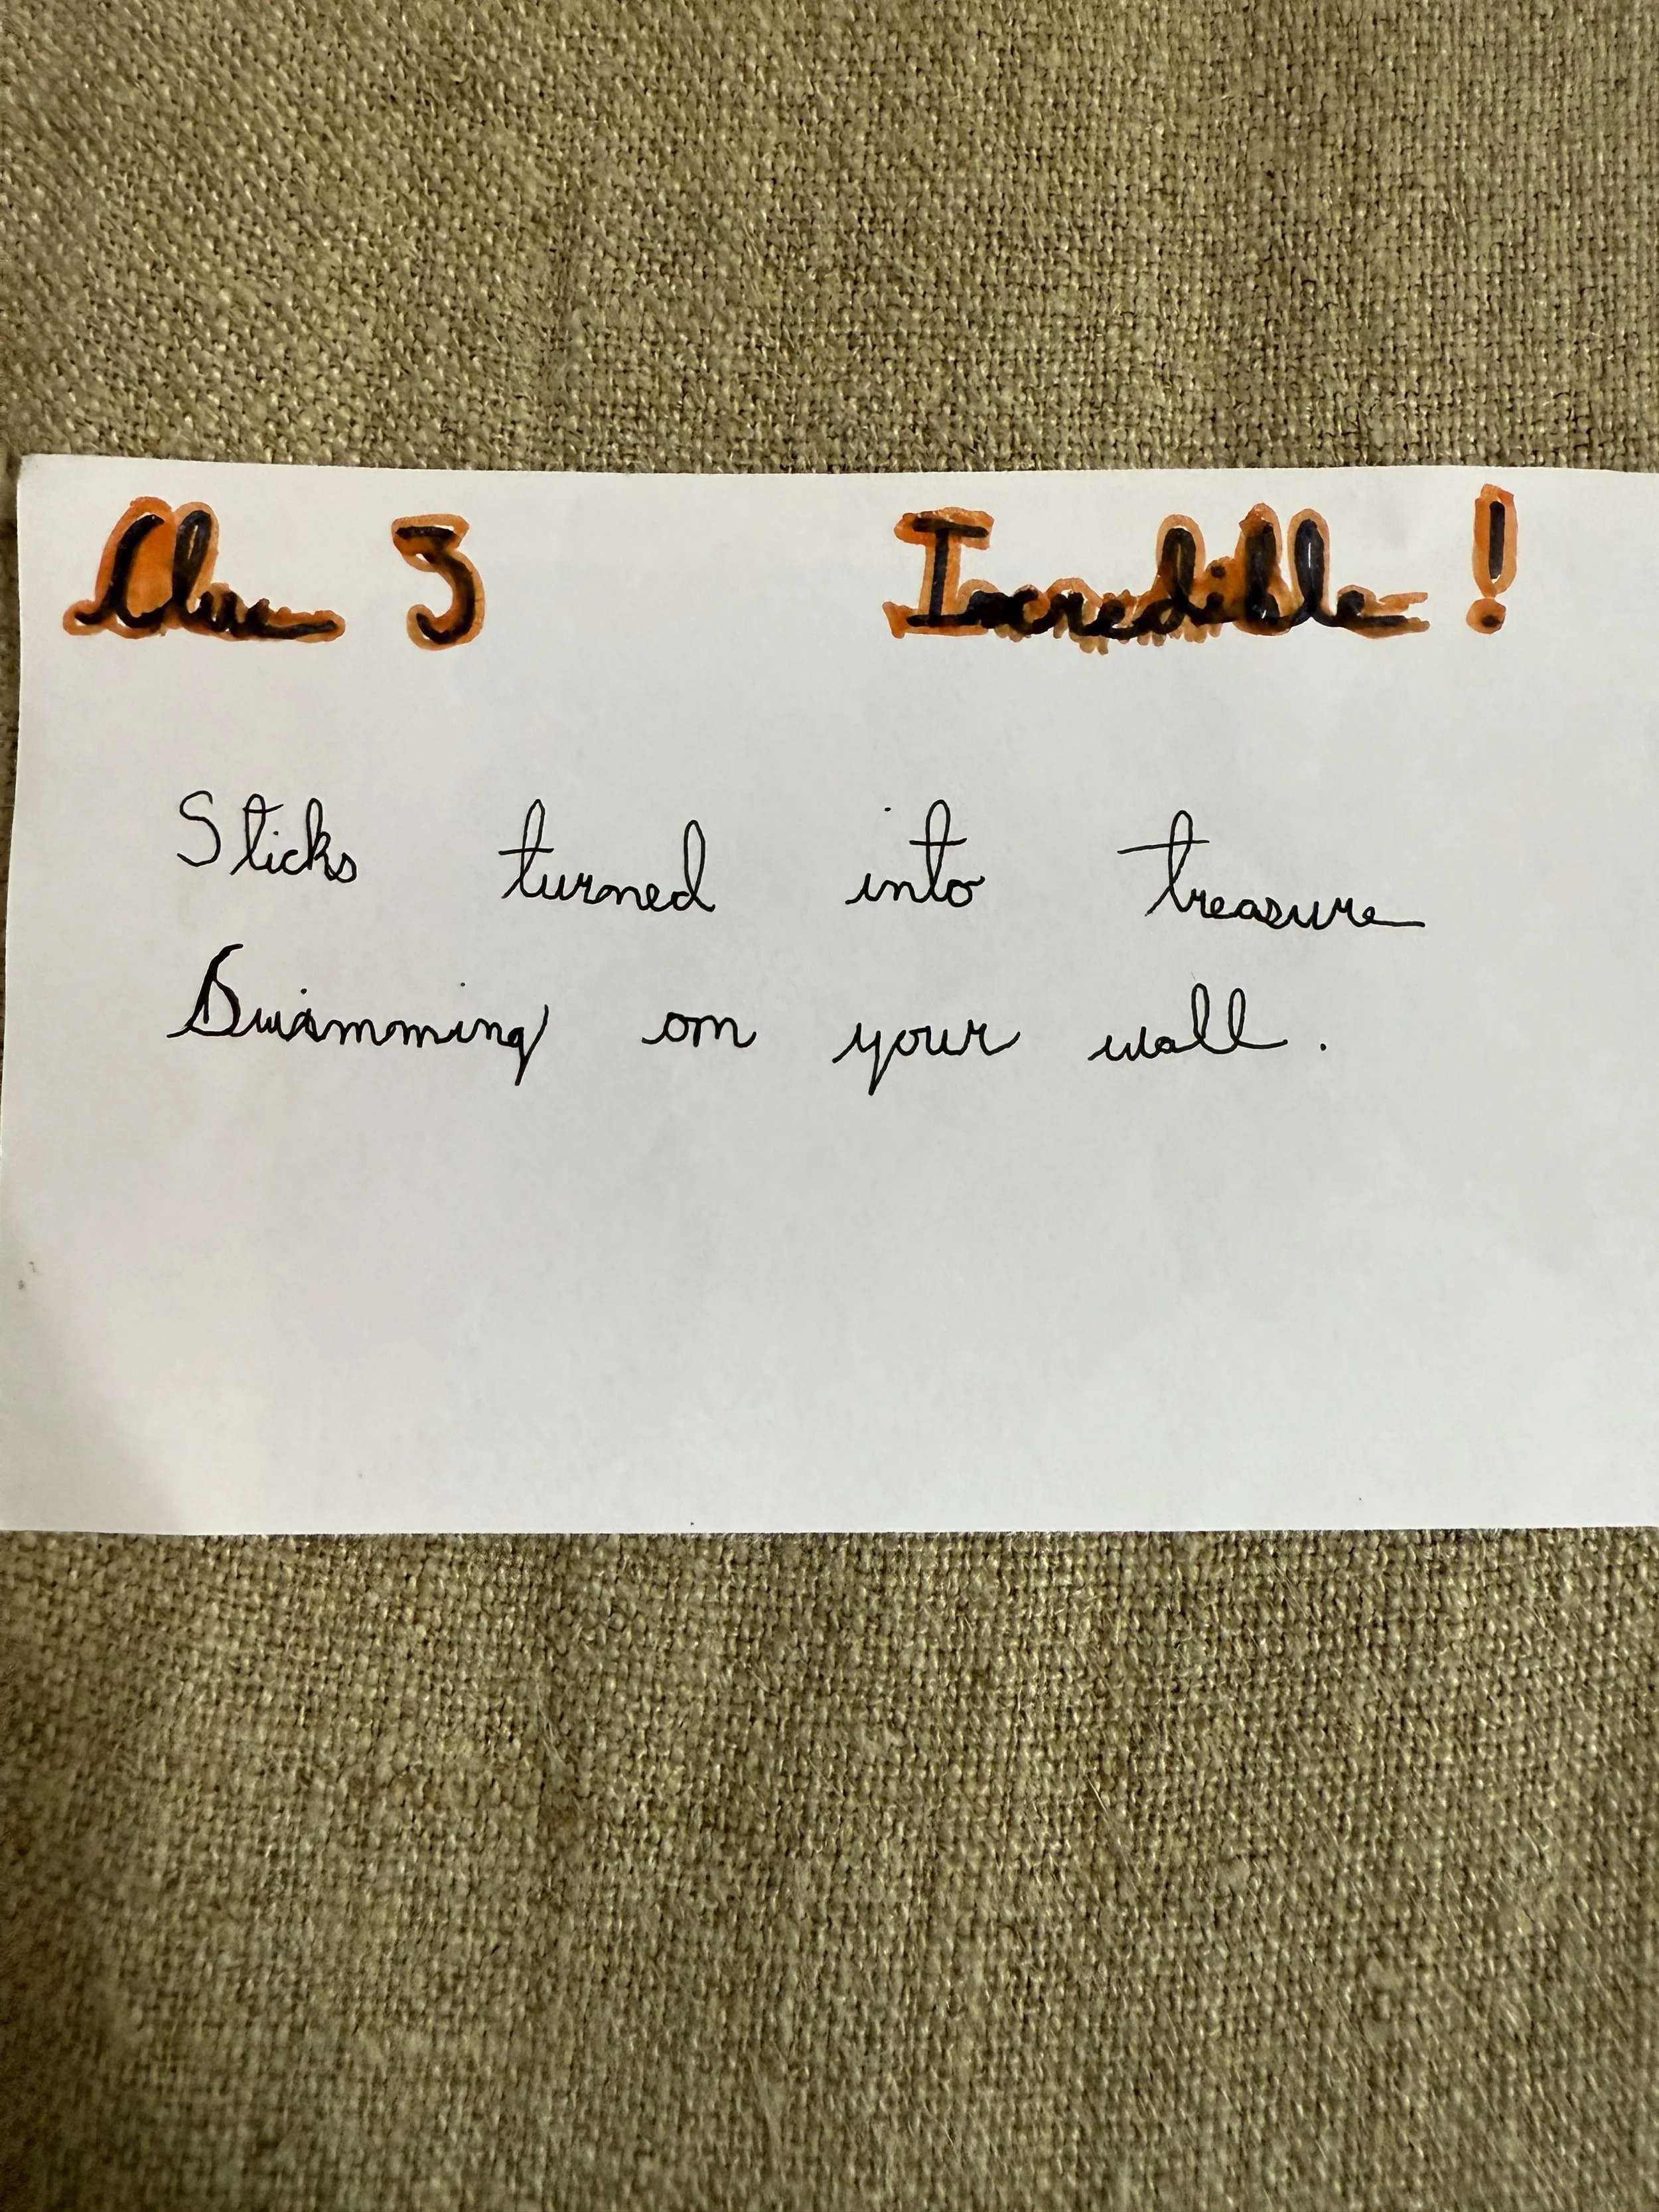 Clue 3 Incredible !
Sticks turned into treasure
Swimming on your wall.